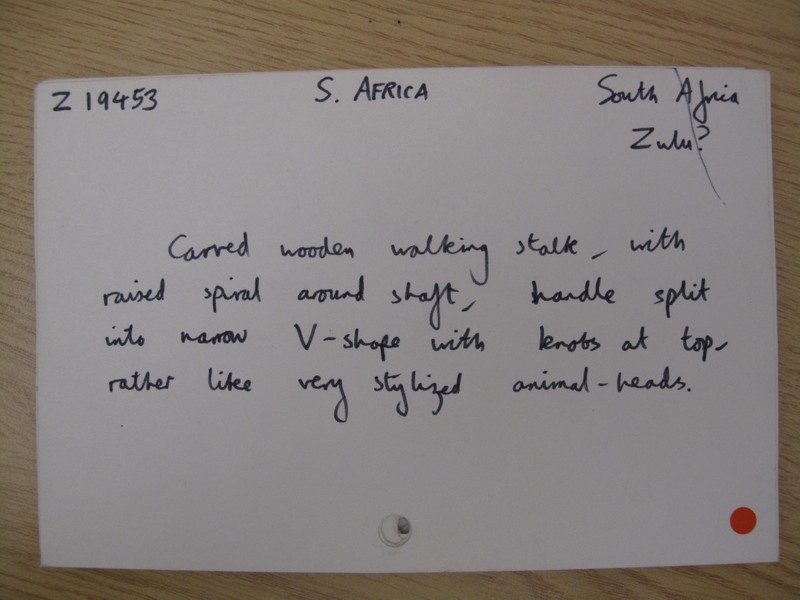 Z 19453
S. AFRICA
South Africa
Zulu?
Carved wooden walking stalk, with
raised spiral around shaft, handle split
into narrow V-shape with knobs at top,
rather like very stylized animal-heads.